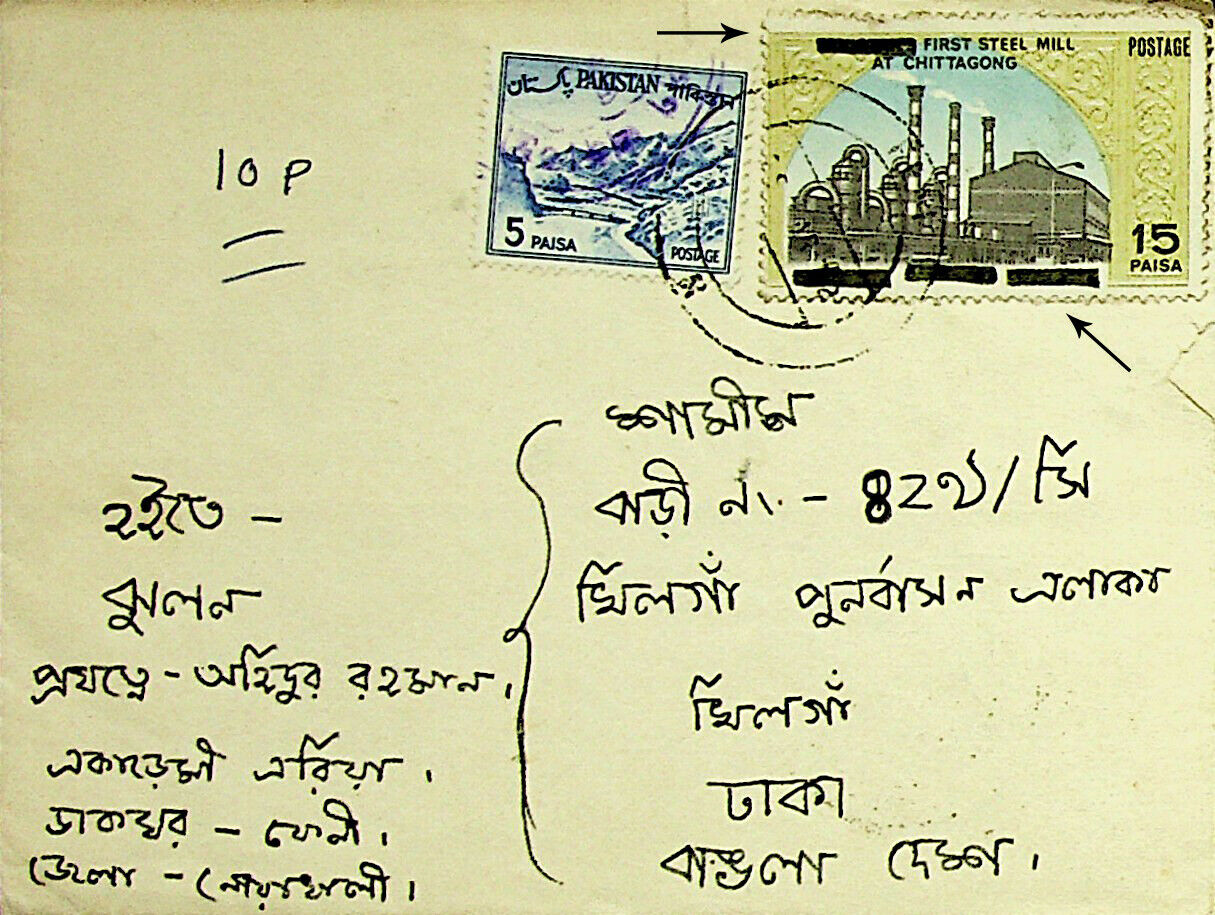 FIRST STEEL MILL POSTAGE
AT CHITTAGONG
15
PAISA
پاکستان PAKISTAN পাকিস্তান
5 PAISA POSTAGE
10 P
শামীম
বাড়ী নং - ৪২৩/সি
খিলগাঁ পুনর্বাসন এলাকা
খিলগাঁ
ঢাকা
বাঙলা দেশ।
হইতে -
ঝুলন
প্রযত্নে - অহিদুর রহমান।
একাডেমী এরিয়া।
ডাকঘর - ফেনী।
জেলা - নোয়াখালী।